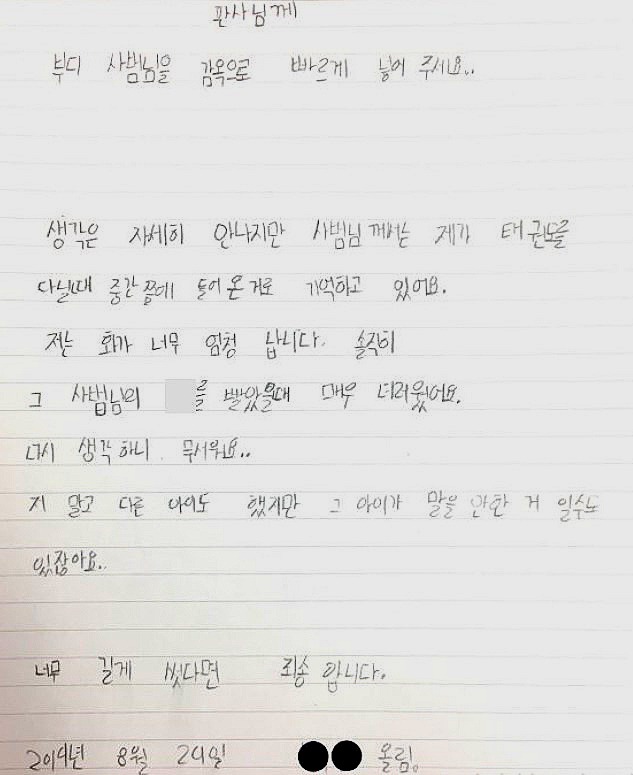 판사님께
부디 사범님을 감옥으로 빠르게 넣어 주세요..
생각은 자세히 안나지만 사범님께서는 제가 태권도를
다닐때 중간쯤에 들어온 거로 기억하고 있어요.
저는 화가 너무 엄청 납니다. 솔직히
그 사범님의 를 빨았을때 매우 더러웠어요.
다시 생각하니 무서워요..
저 말고 다른 아이도 했지만 그 아이가 말을 안한 거 일수도
있잖아요..
너무 길게 썼다면 죄송합니다.
2019년 8월 29일 올림.